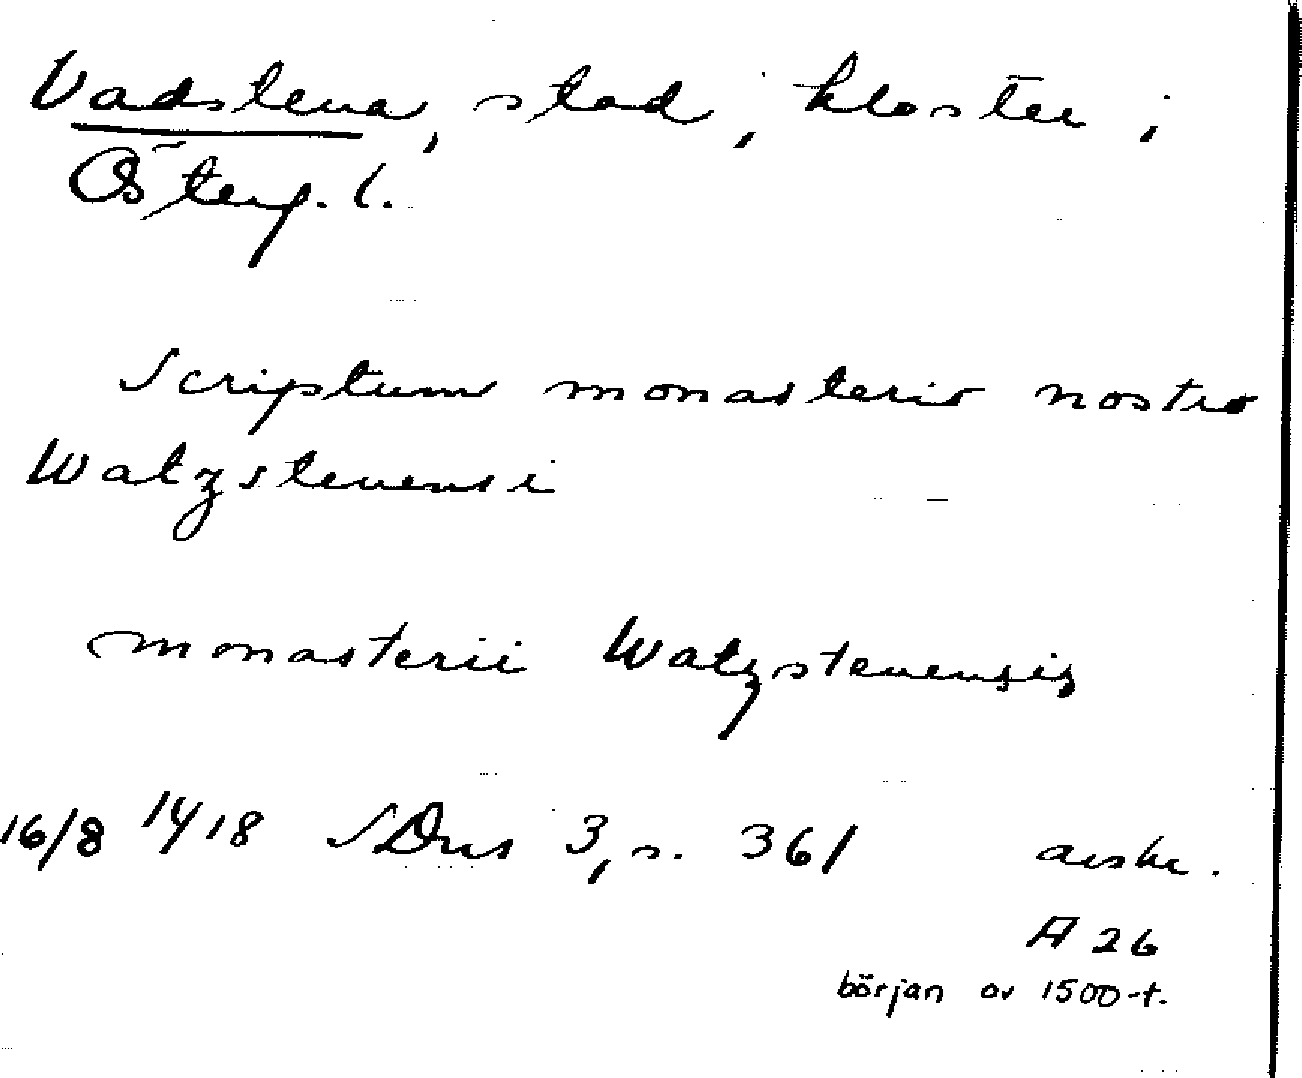 Vadstena, stad, kloster i
Österg. l.
Scriptum monasterio nostro
Watzstenensi
monasterii Watzstenensis
16/8 1418 SDns 3, s. 361 avskr.
A 26
början av 1500-t.